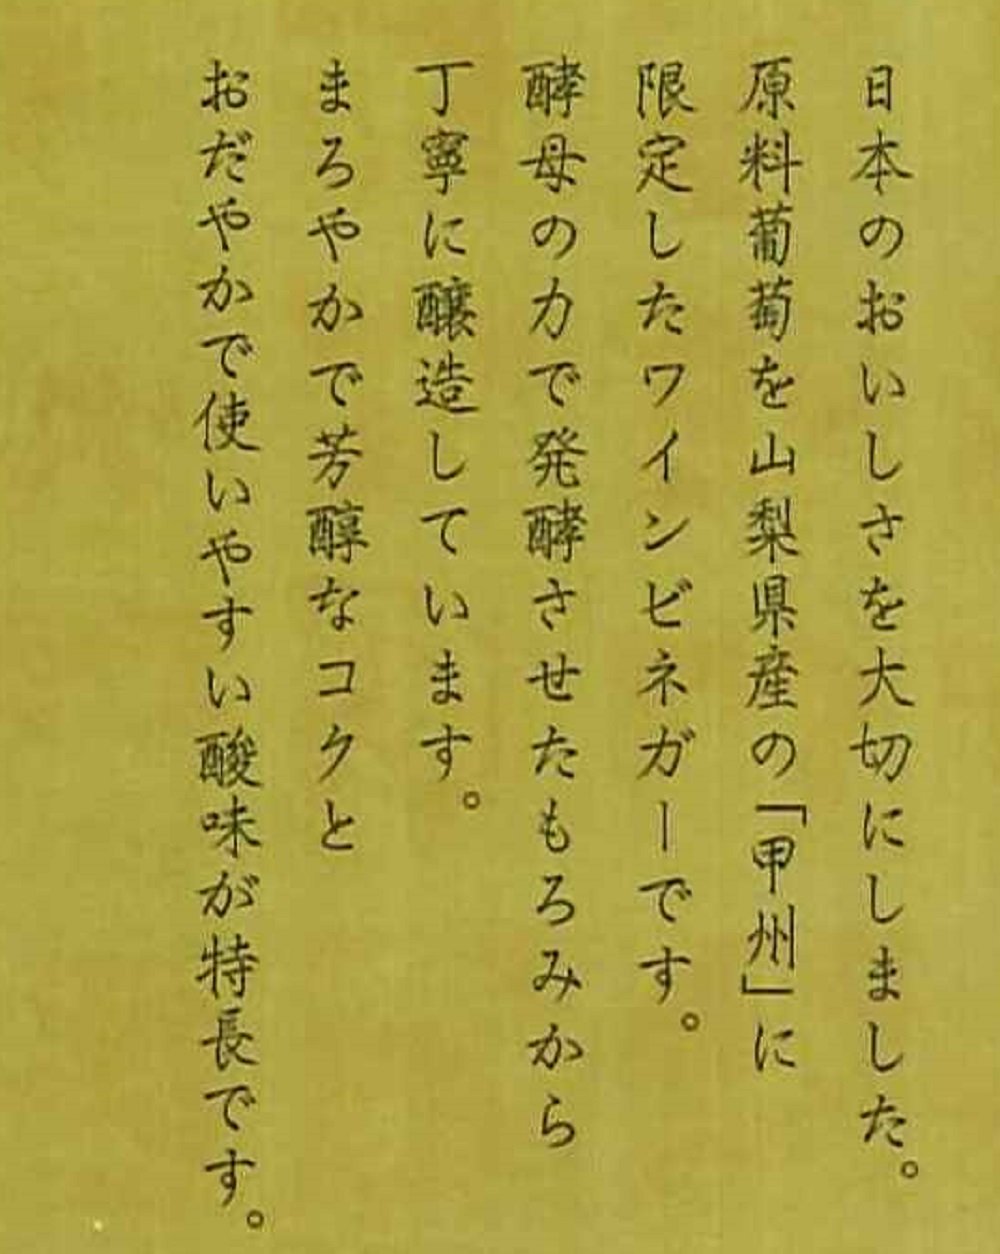 日本のおいしさを大切にしました。
原料葡萄を山梨県産の「甲州」に
限定したワインビネガーです。
酵母の力で発酵させたもろみから
丁寧に醸造しています。
まろやかで芳醇なコクと
おだやかで使いやすい酸味が特長です。